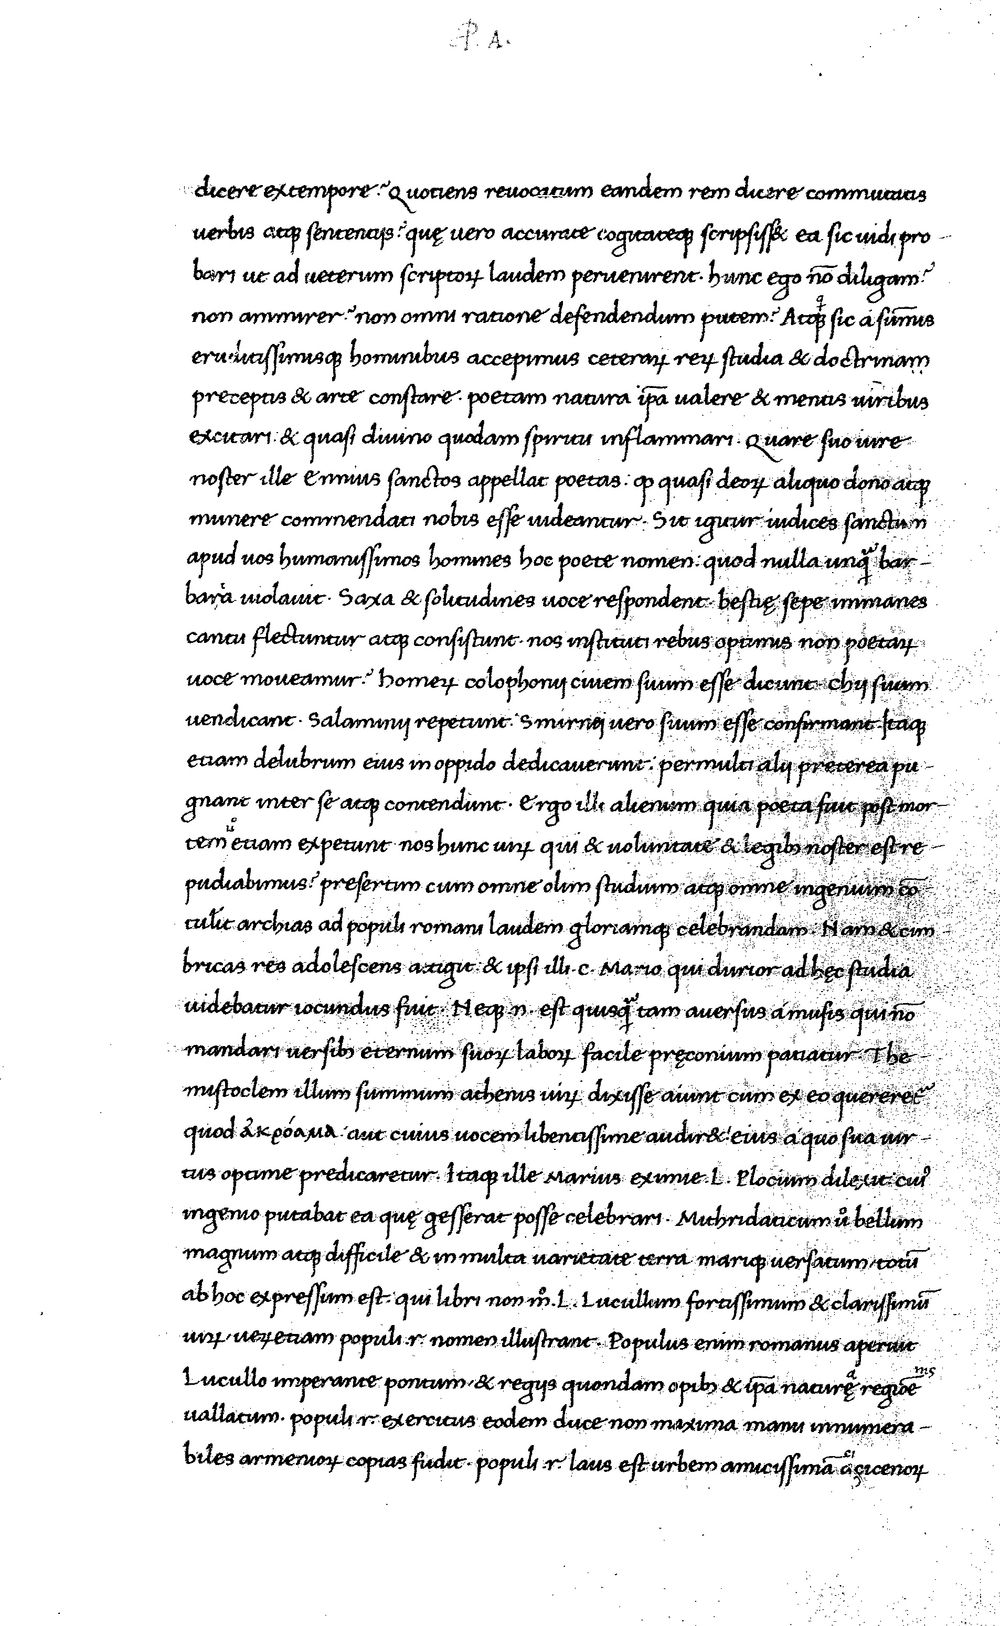 P. A.
dicere extempore? Quotiens reuocatum eandem rem dicere commutatis
uerbis atq; sententijs? quę uero accurate cogitateq; scripsiss& ea sic uidi pro-
bari ut ad ueterum scriptoꝝ laudem peruenirent. hunc ego nō diligam?
non ammirer? non omni ratione defendendum putem? Atq; sic a sūmis
eruditissimisq; hominibus accepimus ceteraꝝ reꝝ studia & doctrinam
preceptis & arte constare. poetam natura ip̄a ualere & mentis uiribus
excitari. & quasi diuino quodam spiritu inflammari. Quare suo iure
noster ille Ennius sanctos appellat poetas. ꝙ quasi deoꝝ aliquo dono atq;
munere commendati nobis esse uideantur. Sit igitur iudices sanctum
apud uos humanissimos homines hoc poete nomen. quod nulla unq̃ bar-
baria uiolauit. Saxa & solitudines uoce respondent. bestię sepe immanes
cantu flectuntur atq; consistunt. nos instituti rebus optimis non poetaꝝ
uoce moueamur? homeꝝ colophonij ciuem suum esse dicunt. chij suum
uendicant. Salaminij repetunt. Smirnęi uero suum esse confirmant. Itaq;
etiam delubrum eius in oppido dedicauerunt. permulti alij preterea pu-
gnant inter se atq; contendunt. Ergo illi alienum quia poeta fuit post mor-
tem etiam expetunt nos hunc uiꝝ qui & uoluntate & legibꝫ noster est re-
pudiabimus? presertim cum omne olim studium atq; omne ingenium cō-
tulit archias ad populi romani laudem gloriamq; celebrandam. Nam & cim-
bricas res adolescens atigit. & ipsi illi .c. Mario qui durior ad hęc studia
uidebatur iocundus fuit. Neq; .n. est quisq̃ tam auersus a musis qui nō
mandari uersibꝫ eternum suoꝝ laboꝝ facile pręconium patiatur. The-
mistoclem illum summum athenis uiꝝ dixisse aiunt cum ex eo quereret̃
quod ἀκρόαμα aut cuius uocem libentissime audir& eius a quo sua uir-
tus optime predicaretur. Itaq; ille Marius eximie .L. Plocium dilexit. cui⁹
ingenio putabat ea quę gesserat posse celebrari. Mithridaticum ů bellum
magnum atq; difficile & in multa uarietate terra mariq; uersatum totū
ab hoc expressum est. qui libri non m̊. L. Lucullum fortissimum & clarissimū
uiꝝ, ueꝝ etiam populi .r. nomen illustrant. Populus enim romanus aperuit
Lucullo imperante pontum, & regijs quondam opibꝫ & ip̄a naturę regiōē
uallatum. populi .r. exercitus eodem duce non maxima manu innumera-
biles armenioꝝ copias fudit. populi .r. laus est urbem amicissimā çicenoꝝ